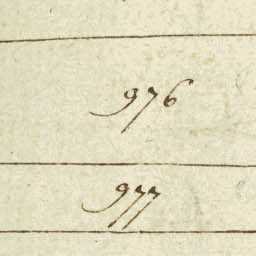 976
977